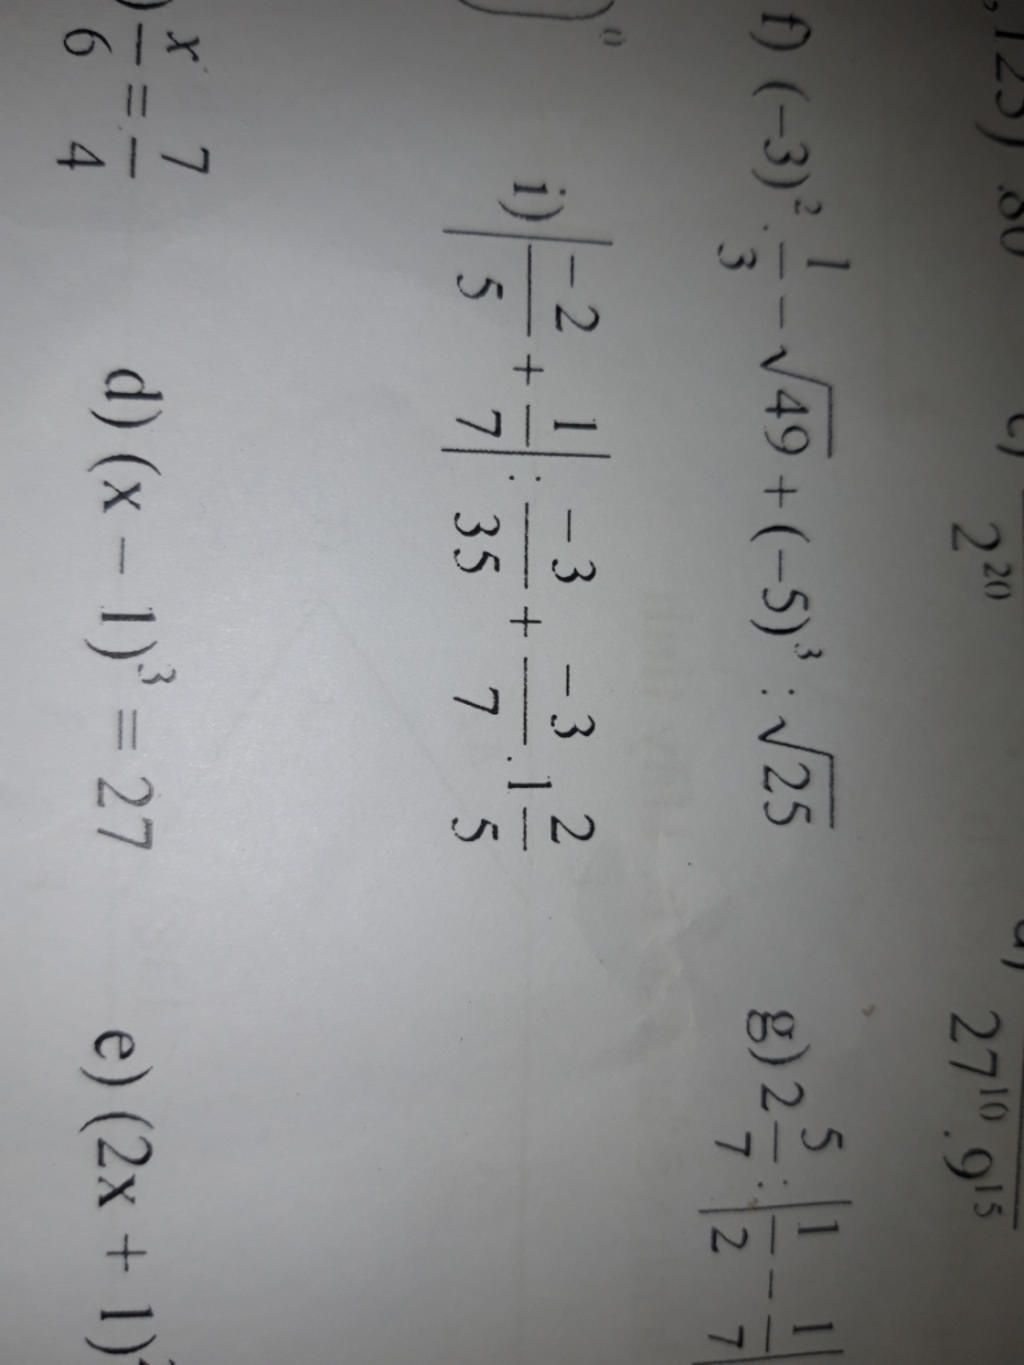 ,125) .80
c) 2²⁰
d) 27¹⁰.9¹⁵
f) (−3)² . 1/3 − √49 + (−5)³ : √25
g) 2 5/7 : |1/2 − 1/7|
)⁰
i) |−2/5 + 1/7| : −3/35 + −3/7 . 1 2/5
) x/6 = 7/4
d) (x − 1)³ = 27
e) (2x + 1)